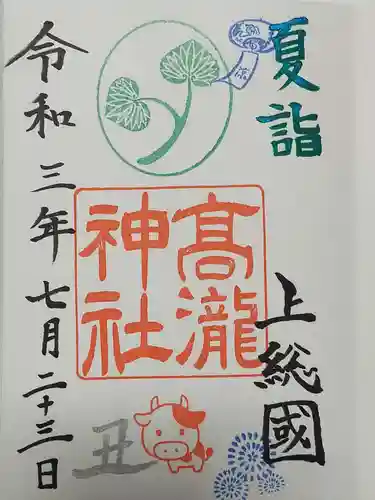 夏詣
上総國
高瀧
神社
令和三年七月二十三日
丑